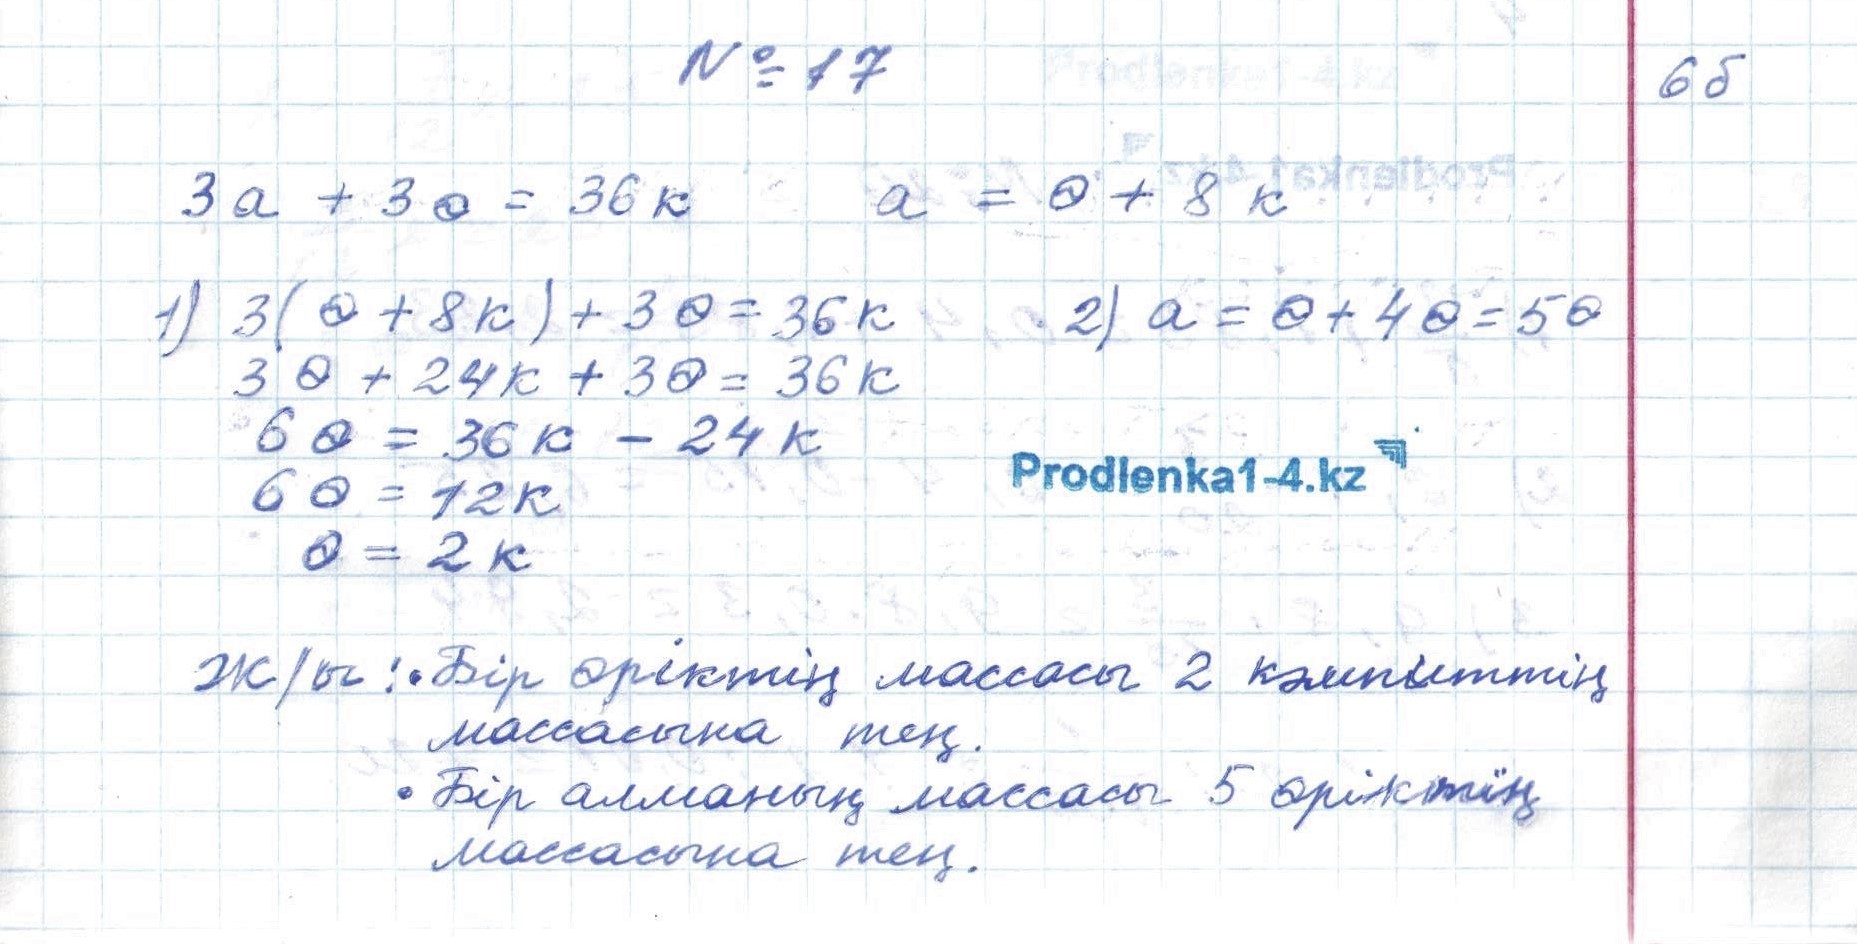 № 17
6б
3а + 3ө = 36к    а = ө + 8к
1) 3(ө + 8к) + 3ө = 36к    2) а = ө + 4ө = 5ө
3ө + 24к + 3ө = 36к
6ө = 36к - 24к
Prodlenka1-4.kz
6ө = 12к
ө = 2к
Ж/ы: • Бір өріктің массасы 2 кәмпиттің
массасына тең.
• Бір алманың массасы 5 өріктің
массасына тең.